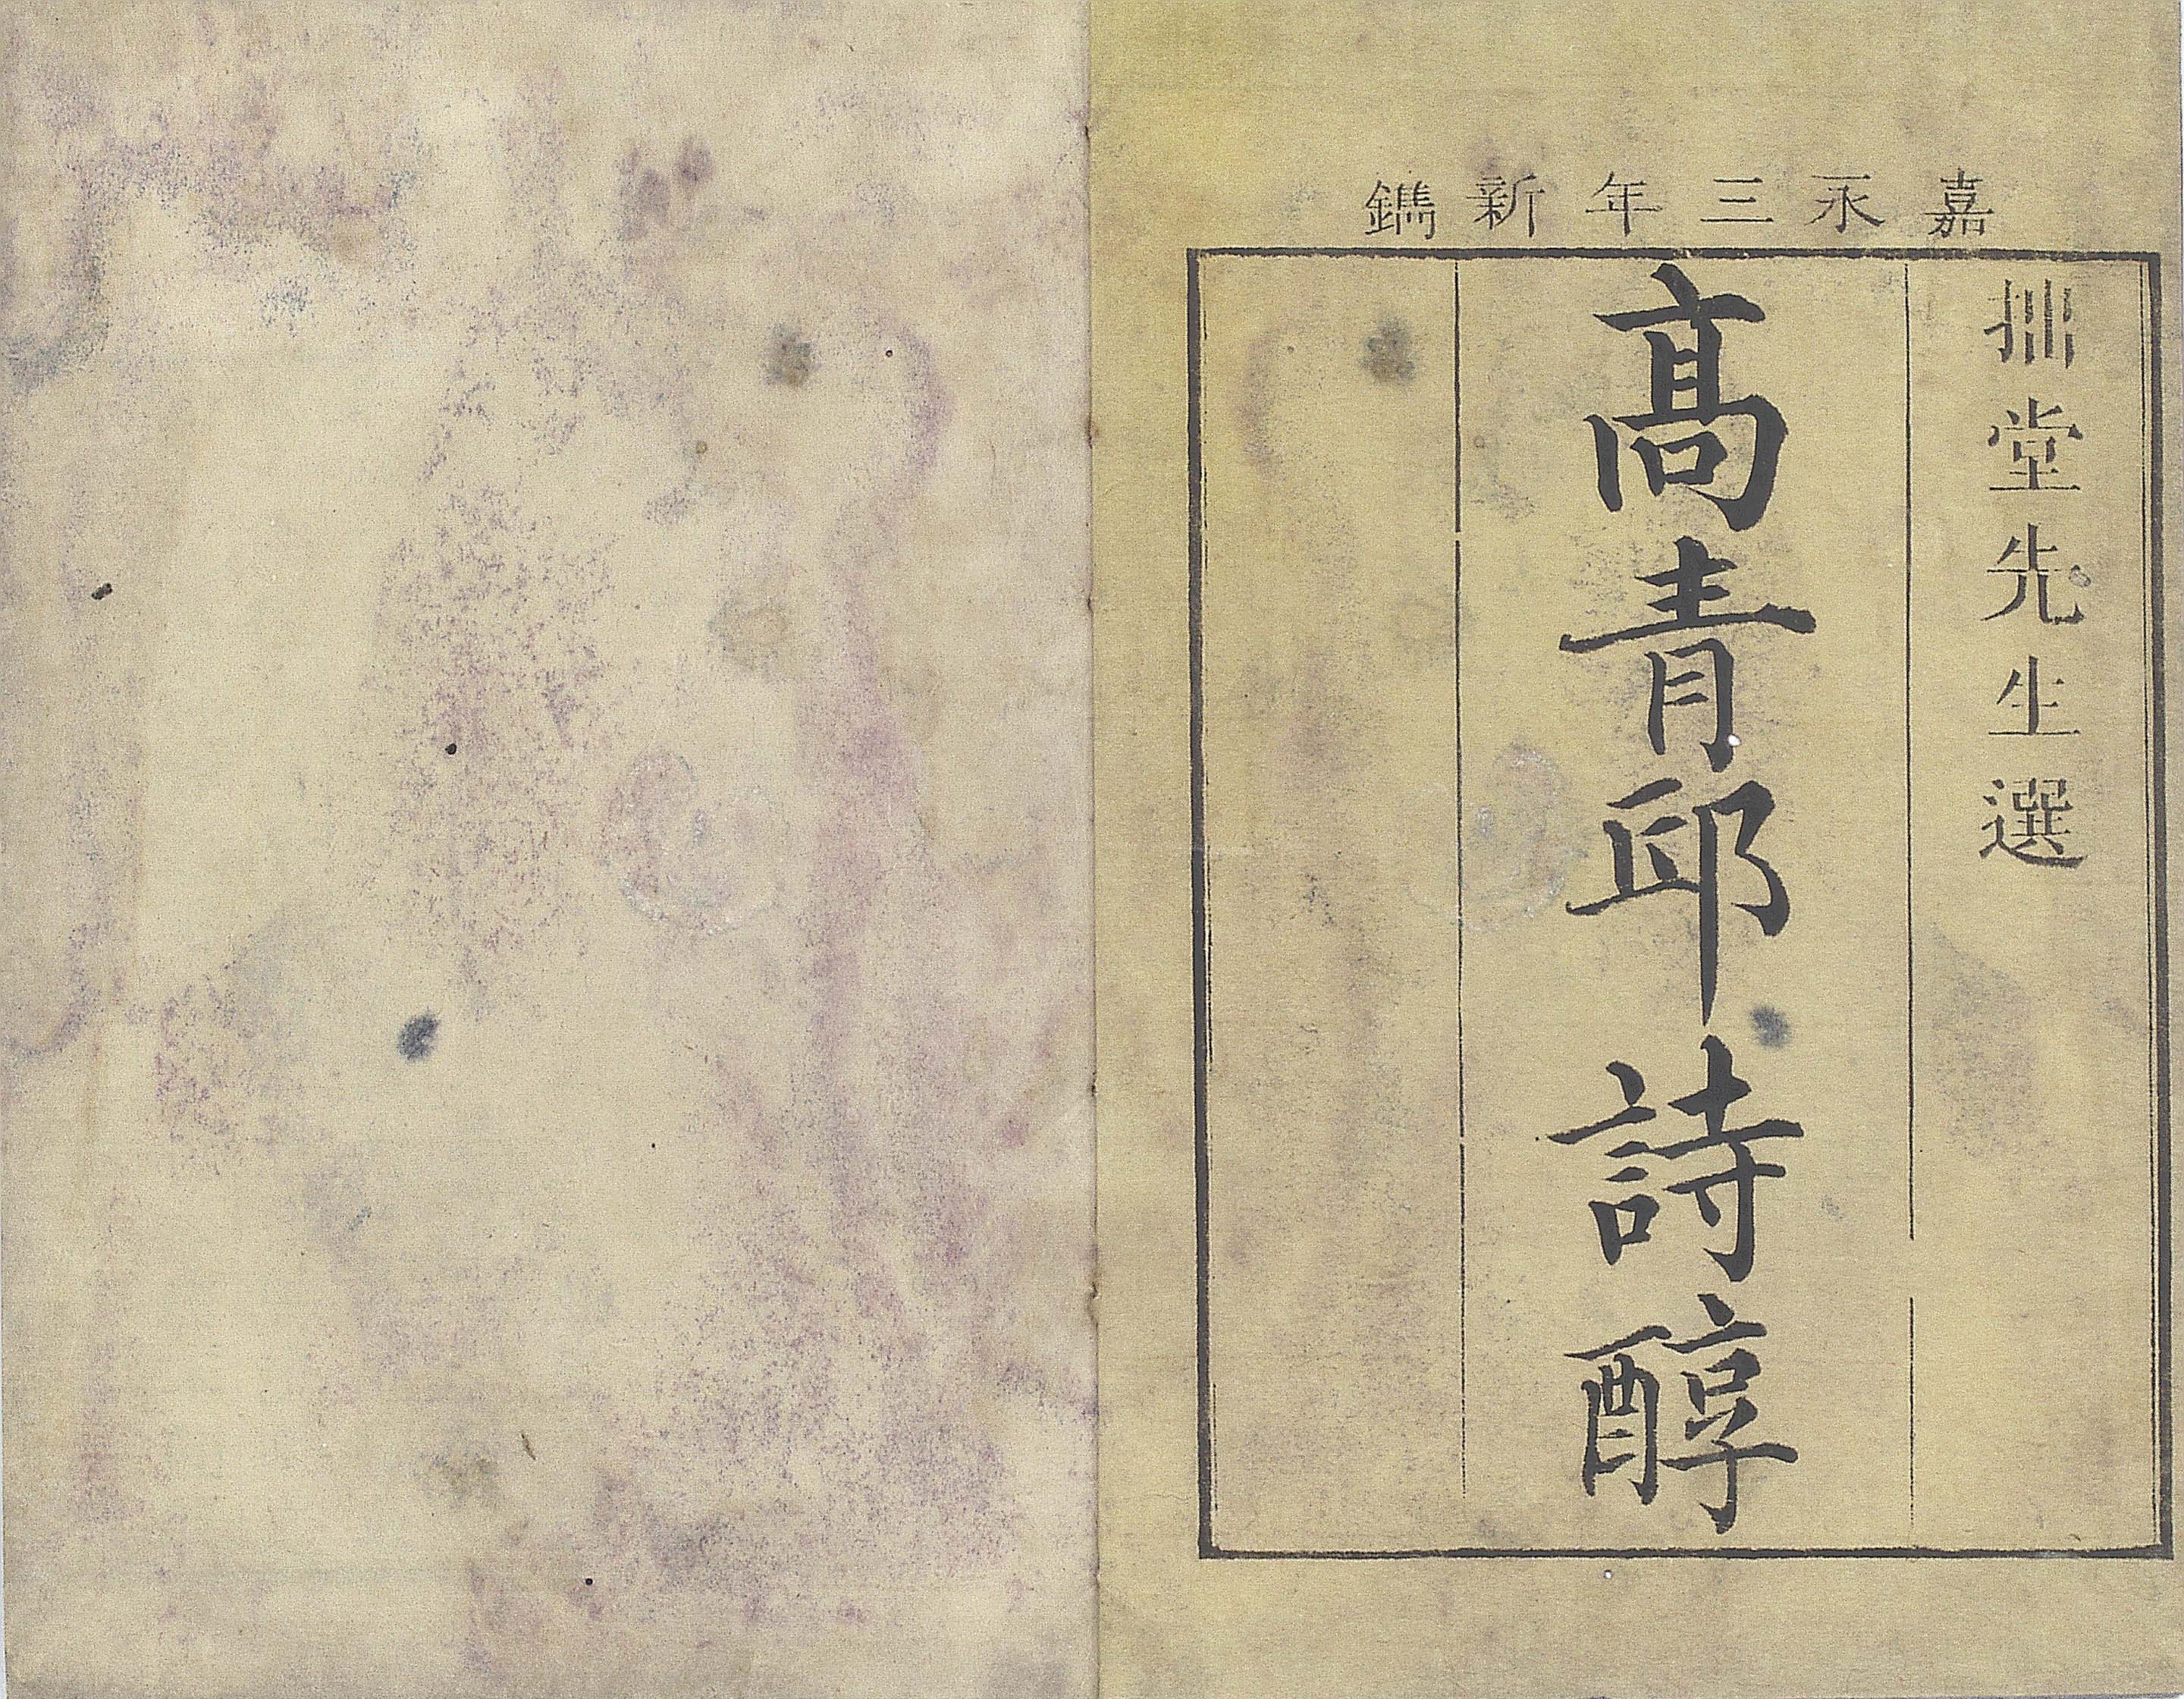 嘉永三年新鐫
拙堂先生選
髙青邱詩醇